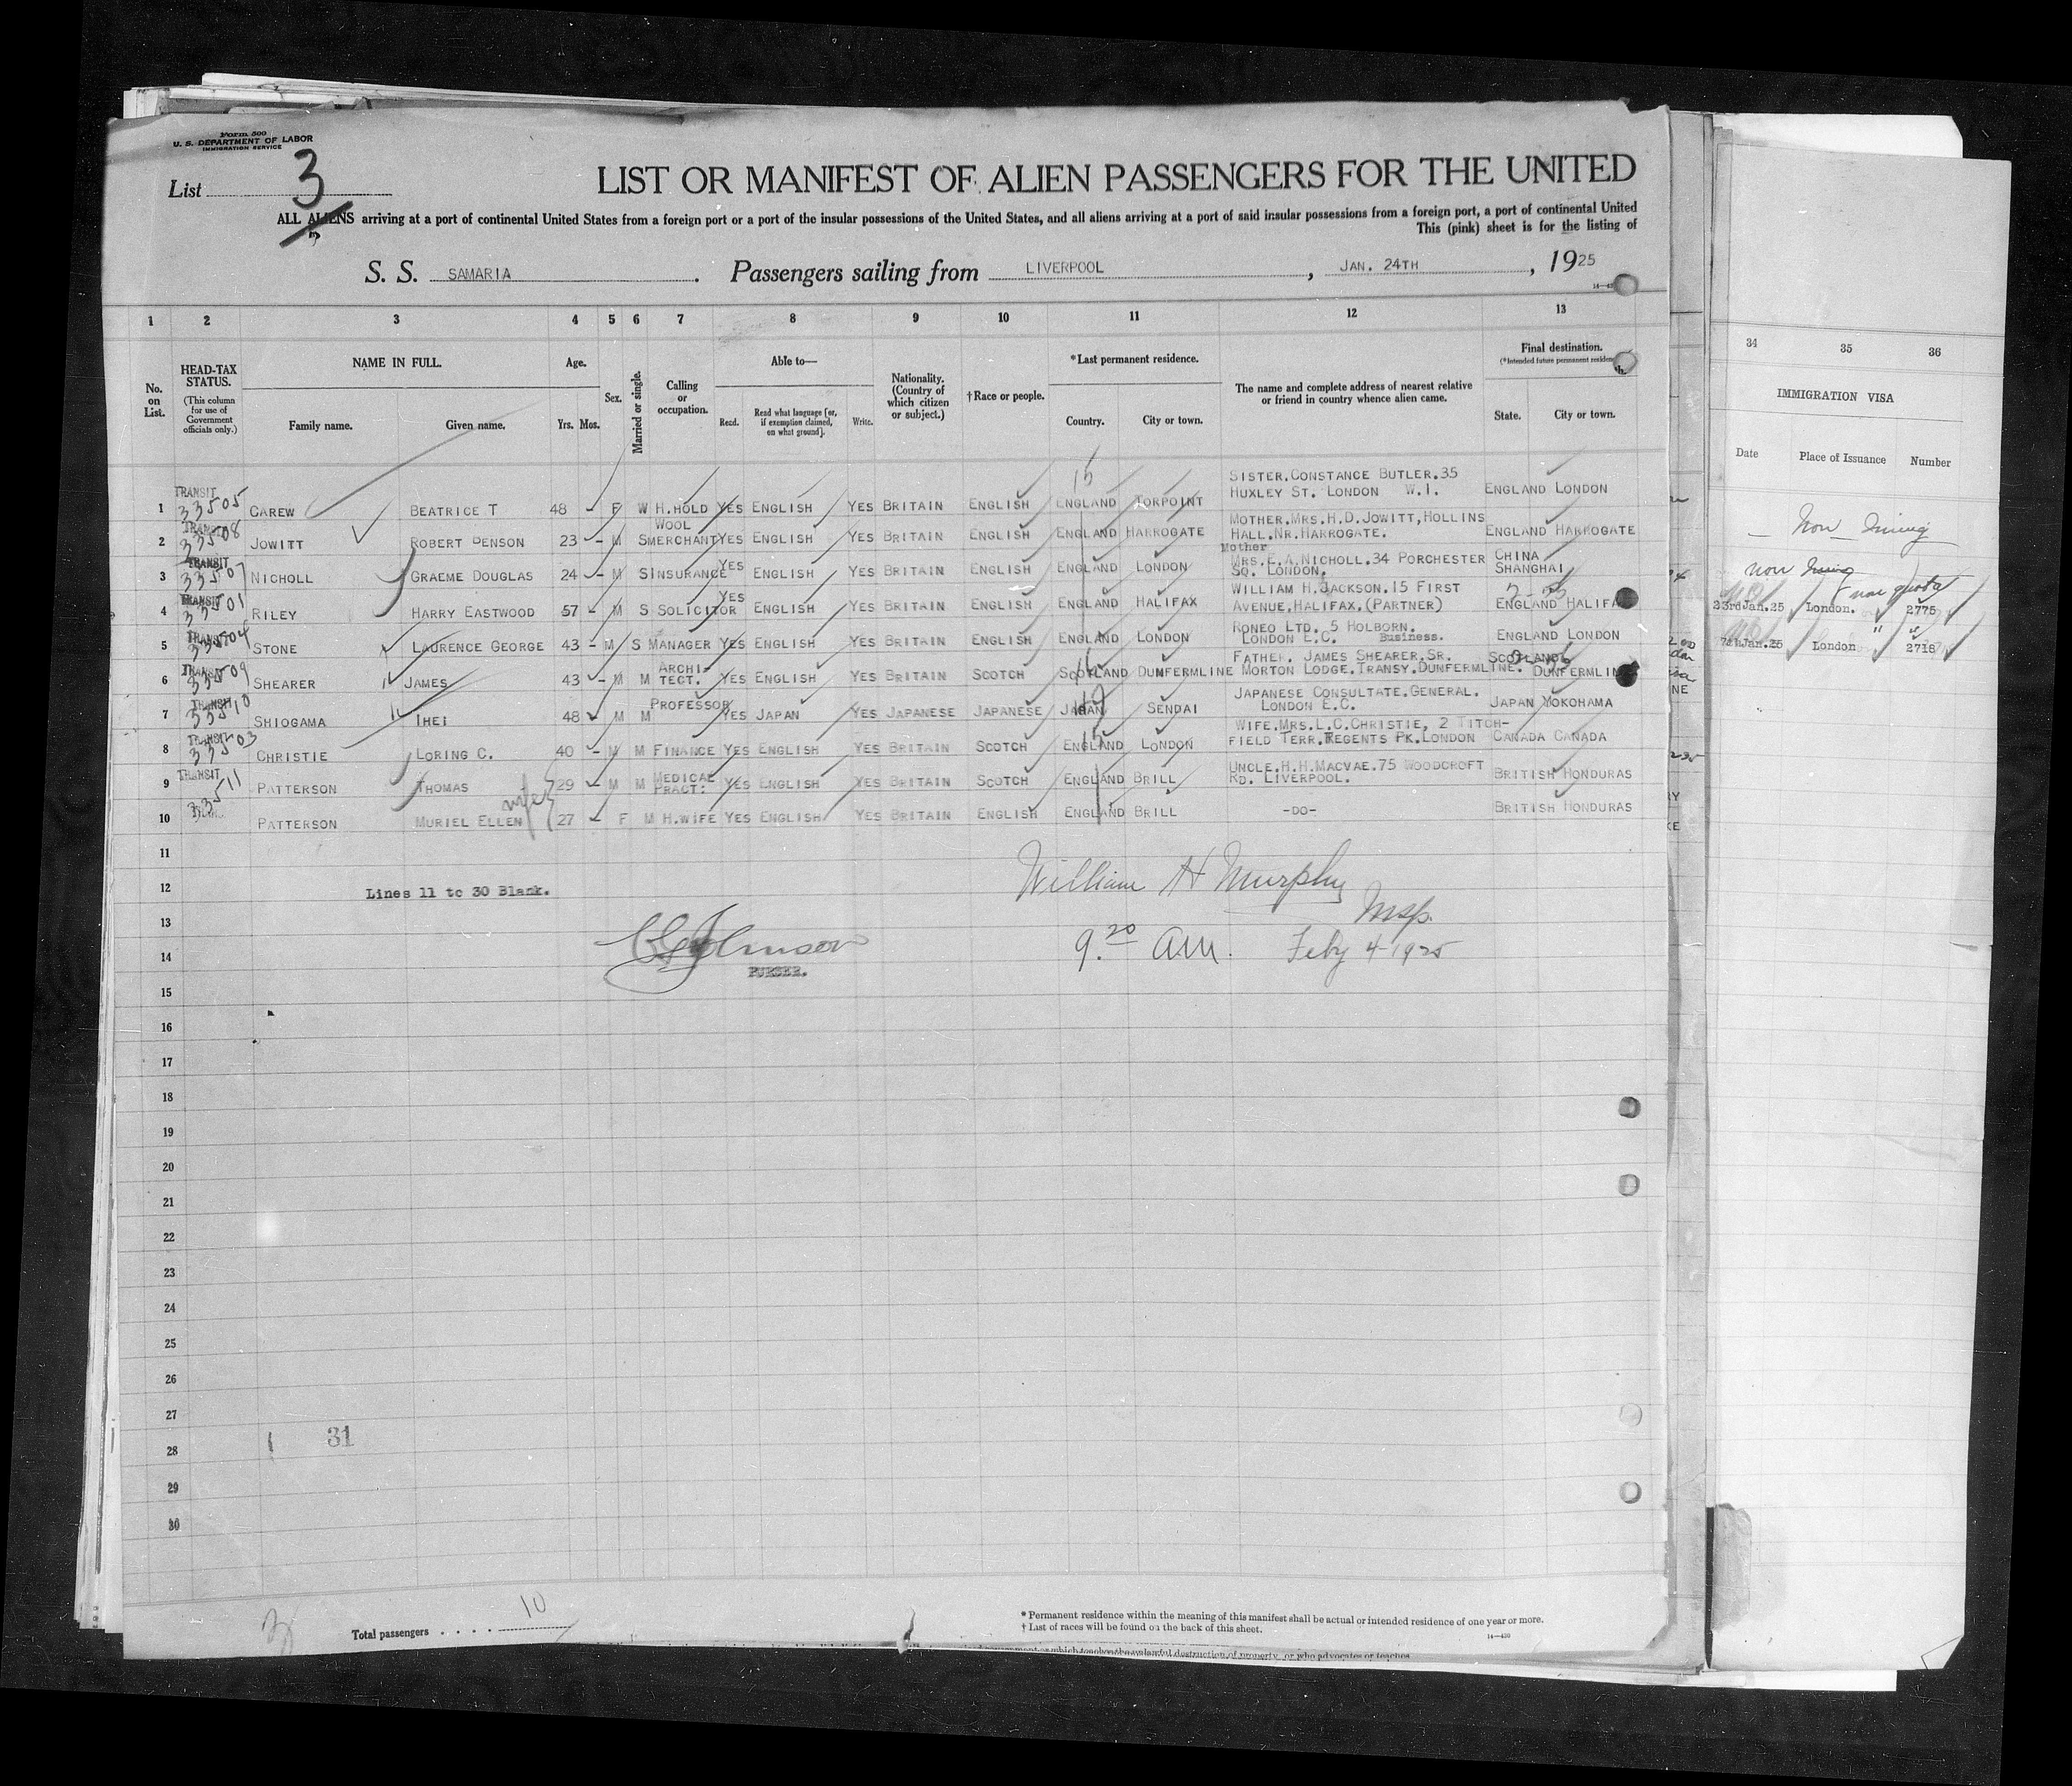 Form 500
U. S. DEPARTMENT OF LABOR
IMMIGRATION SERVICE
List 3
LIST OR MANIFEST OF ALIEN PASSENGERS FOR THE UNITED
ALL ALIENS arriving at a port of continental United States from a foreign port or a port of the insular possessions of the United States, and all aliens arriving at a port of said insular possessions from a foreign port, a port of continental United
This (pink) sheet is for the listing of
S. S. SAMARIA. Passengers sailing from LIVERPOOL, JAN. 24TH, 1925
1 2 3 4 5 6 7 8 9 10 11 12 13
No. on List.
HEAD-TAX STATUS.
(This column for use of Government officials only.)
NAME IN FULL.
Family name. Given name.
Age.
Yrs. Mos.
Sex.
Married or single.
Calling or occupation.
Able to—
Read. Read what language [or, if exemption claimed, on what ground]. Write.
Nationality. (Country of which citizen or subject.)
†Race or people.
*Last permanent residence.
Country. City or town.
The name and complete address of nearest relative or friend in country whence alien came.
Final destination.
(*Intended future permanent residence.)
State. City or town.
34 35 36
IMMIGRATION VISA
Date Place of Issuance Number
1 TRANSIT 33505 CAREW BEATRICE T 48 F W H.HOLD YES ENGLISH YES BRITAIN ENGLISH ENGLAND TORPOINT SISTER.CONSTANCE BUTLER.35 HUXLEY ST. LONDON W.1. ENGLAND LONDON
2 TRANSIT 33508 JOWITT ROBERT BENSON 23 - M S WOOL MERCHANT YES ENGLISH YES BRITAIN ENGLISH ENGLAND HARROGATE MOTHER.MRS.H.D.JOWITT,HOLLINS HALL.NR.HARROGATE. ENGLAND HARROGATE
3 TRANSIT 33507 NICHOLL GRAEME DOUGLAS 24 - M S INSURANCE YES ENGLISH YES BRITAIN ENGLISH ENGLAND LONDON Mother MRS.E.A.NICHOLL.34 PORCHESTER SQ. LONDON. CHINA SHANGHAI
4 TRANSIT 33501 RILEY HARRY EASTWOOD 57 M S SOLICITOR YES ENGLISH YES BRITAIN ENGLISH ENGLAND HALIFAX WILLIAM H.JACKSON.15 FIRST AVENUE,HALIFAX,(PARTNER) ENGLAND HALIFAX
5 TRANSIT 33504 STONE LAURENCE GEORGE 43 - M S MANAGER YES ENGLISH YES BRITAIN ENGLISH ENGLAND LONDON RONEO LTD. 5 HOLBORN. LONDON E.C. Business. ENGLAND LONDON
6 TRANSIT 33509 SHEARER JAMES 43 - M M ARCHI-TECT. YES ENGLISH YES BRITAIN SCOTCH SCOTLAND DUNFERMLINE FATHER. JAMES SHEARER.SR. MORTON LODGE.TRANSY.DUNFERMLINE. SCOTLAND DUNFERMLINE
7 TRANSIT 33510 SHIOGAMA IHEI 48 M M PROFESSOR YES JAPAN YES JAPANESE JAPANESE JAPAN SENDAI JAPANESE CONSULTATE.GENERAL. LONDON E.C. JAPAN YOKOHAMA
8 TRANSIT 33503 CHRISTIE LORING C. 40 - M M FINANCE YES ENGLISH YES BRITAIN SCOTCH ENGLAND LONDON WIFE.MRS.L.C.CHRISTIE, 2 TITCH-FIELD TERR.REGENTS PK.LONDON CANADA CANADA
9 TRANSIT 33511 PATTERSON THOMAS 29 - M M MEDICAL PRACT: YES ENGLISH YES BRITAIN SCOTCH ENGLAND BRILL UNCLE.H.H.MACVAE.75 WOODCROFT RD. LIVERPOOL. BRITISH HONDURAS
10 PATTERSON MURIEL ELLEN wife 27 F M H.WIFE YES ENGLISH YES BRITAIN ENGLISH ENGLAND BRILL -DO- BRITISH HONDURAS
Non Immig
non Immig
non quota
23rd Jan.25 London. 2775
7th Jan.25 London " 2718
11
12 Lines 11 to 30 Blank.
William H Murphy
Insp.
13
9.20 AM. Feby 4 1925
14
PURSER.
15
16
17
18
19
20
21
22
23
24
25
26
27
28 31
29
30
Total passengers . . . . . 10
* Permanent residence within the meaning of this manifest shall be actual or intended residence of one year or more.
† List of races will be found on the back of this sheet.
14—430